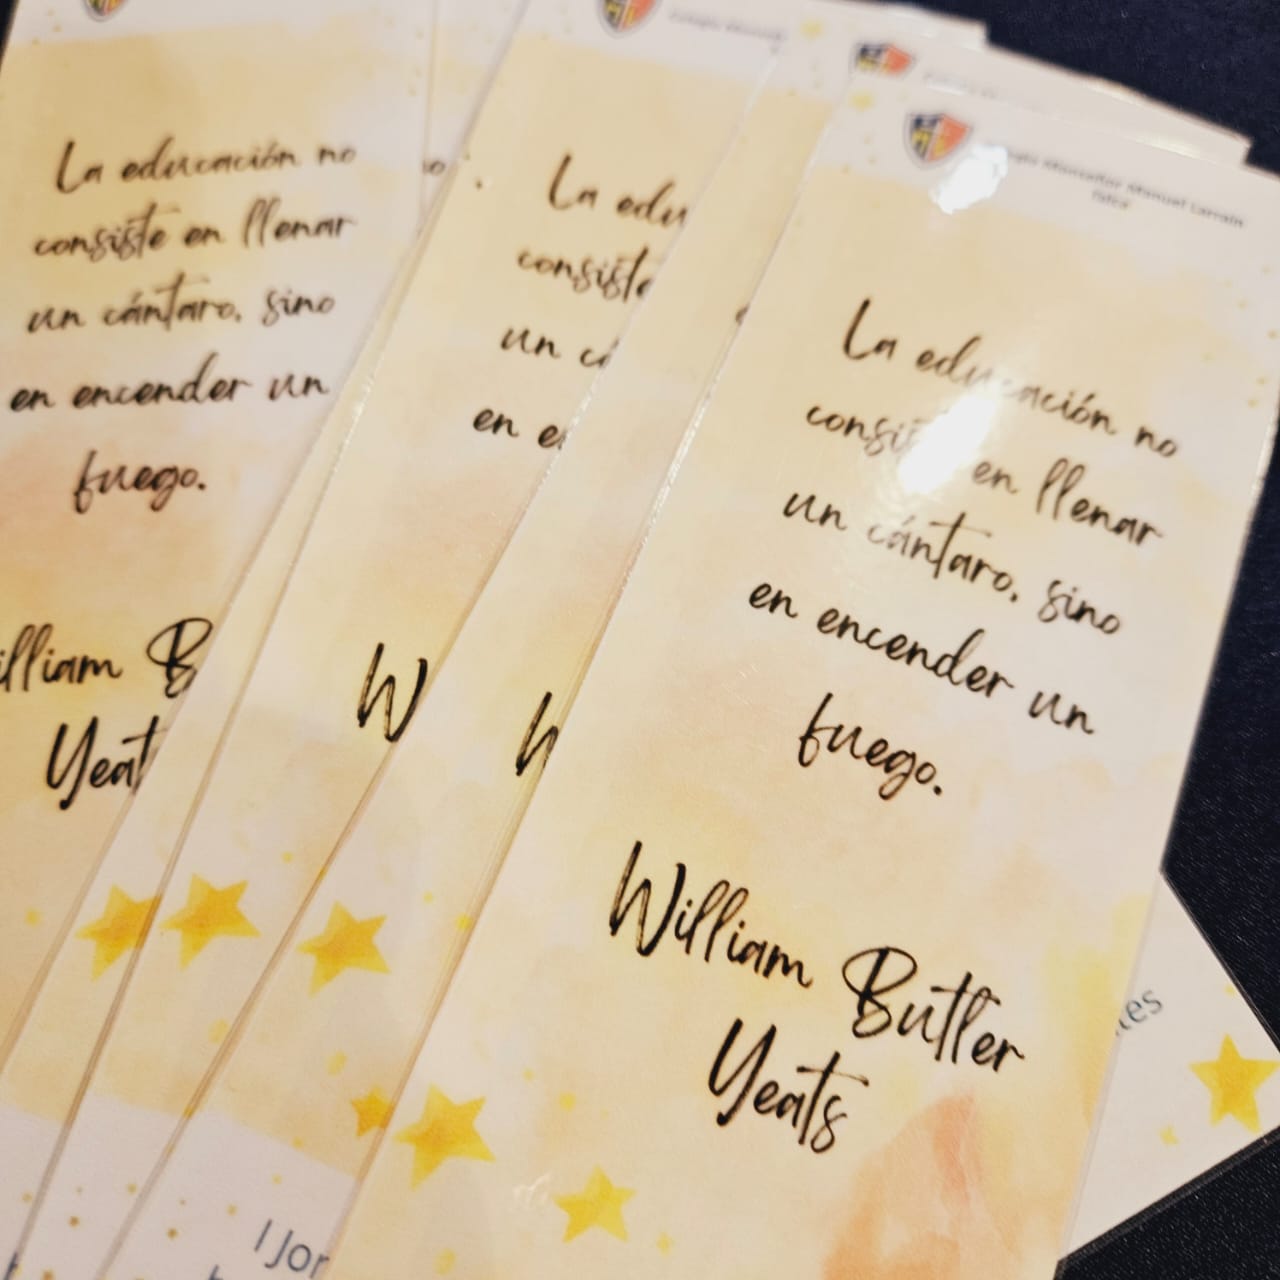 La educación no
consiste en llenar
un cántaro, sino
en encender un
fuego.
William B
Yeat
no
La edu
consiste
un cá
en e
W
W
Colegio Monseñor Manuel Larraín
Talca
La educación no
consiste en llenar
un cántaro, sino
en encender un
fuego.
William Butler
Yeats
tes
I Jor